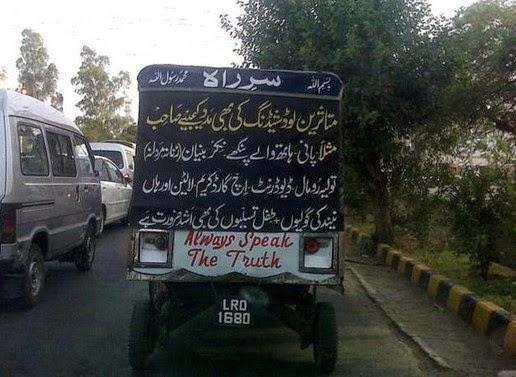 بسم اللہ سرِراہ محمد رسول اللہ
متاثرین لوڈشیڈنگ کی بھی مدد کیجیئے صاحب
مثلاً پانی، ہاتھ والے پنکھے، نیکر، بنیان (زنانہ مردانہ)
تولیہ رومال، ڈیوڈرنٹ، اِچ گارڈ کریم، لالٹین اور ہاں
نیند کی گولیوں، طفل تسلیوں کی بھی اشد ضرورت ہے
Always Speak
The Truth
LRO
1680